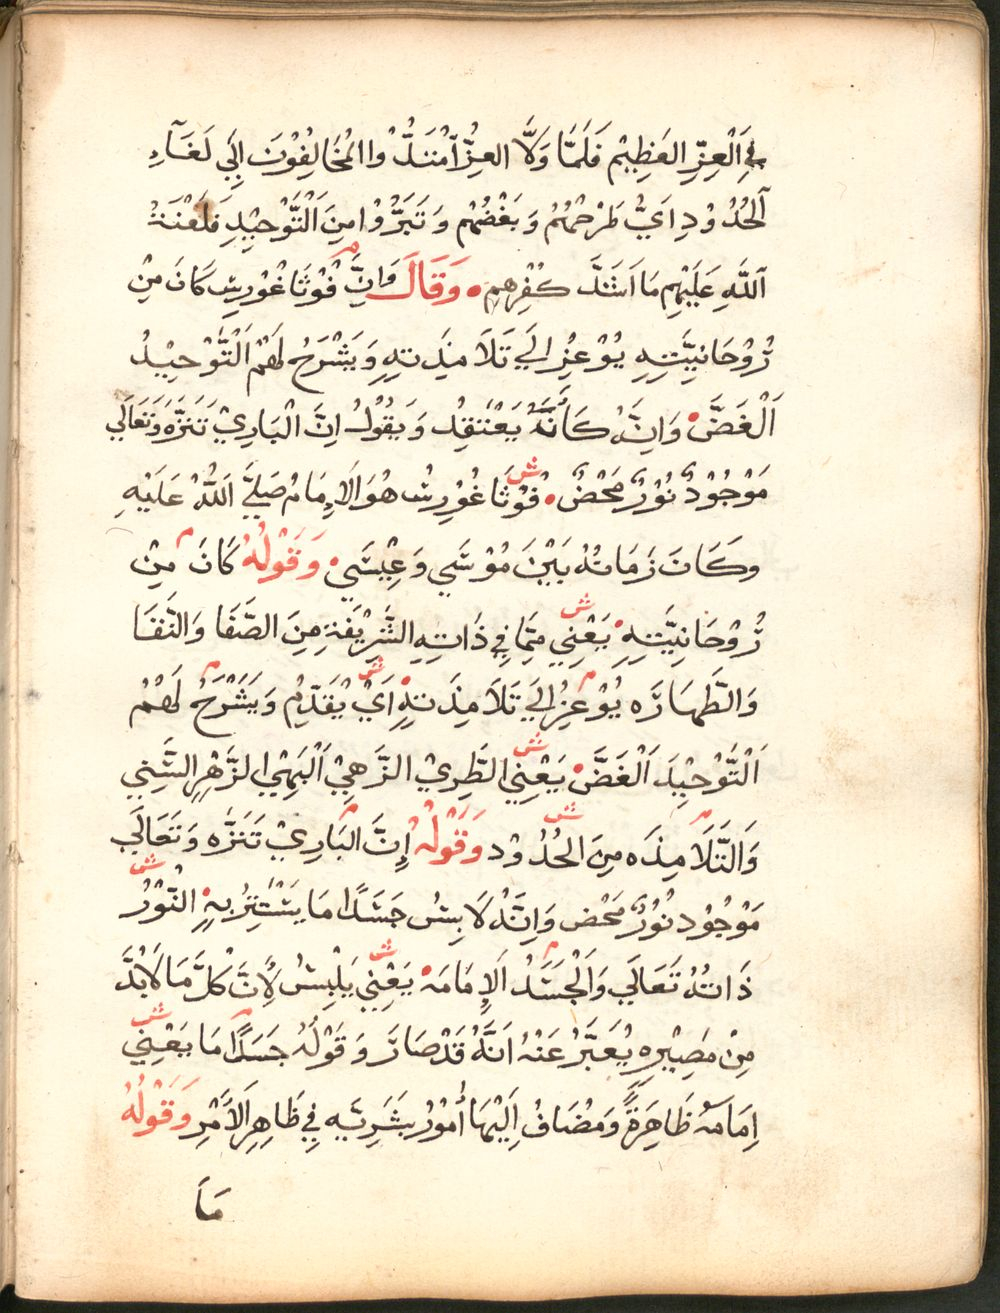 في اَلْعِزِّ العَظِيْمِ فَلَمَّا وَلَّا العِزُّ اَمْتَدُّوْا المُخَالِفُوْنَ اِلَي لَغَآءِ
اَلحُدُوْدِ اَيْ طَرْحِهُمُ وَبَغْضُهُم وَتَبَرَّوُا مِنَ اَلْتَّوْحِيْدِ فَلَعْنَةُ
اَللَّهِ عَلَيْهِم مَا اَشَدَّ كُفْرِهِمِ • وَقَالَ وَاِنَّ فُوْثَاغُوْرِسِ كَانَ مِنْ
رُّوْحَانِيَّتِهِ يُوْعِزِ اِلَي تَلَامِذَتِهِ وَيَشْرَحُ لَهُمْ اَلْتَّوْحِيْدُ
اَلْغَضَّ • وَاِنَّهُ كَاَنَّهُ يَعْتَقِد وَيَقُوْلُ اِنَّ الْبَارِيْ تَنَزَّه وَتَعَالَي
مَوْجُوْدٌ نُوْرٌ مَحْضٌ • ش فُوْثَاغُوْرِسُ هُوَ الاِمَامُ صَلَّي اَللّهُ عَلَيْهِ
وَكَانَ زَمَانُهُ بَيْنَ مُوْسَي وَعِيْسَي • وَقَوْلُهُ كَانَ مِنْ
رُّوْحَانِيَّتِهِ • ش يَعْنِي مِمَّا فِي ذَاتِهِ الشَّرِيْفَة مِنَ الصَّفَا وَالنَّقَا
وَالطَّهَارَه يُوْعِزُ اِلَيَ تَلَامِذَتِهِ • ش اَيْ يُقَدِّمُ وَيَشْرَحُ لَهُمُ
اَلْتَّوْحِيْدَ اَلْغَضَّ • ش يَعْنِي الطَّرِيْ الزَّهِيْ اَلْبَهِيْ الزَّهِرِ السَّنِي
وَالتَّلَامِذَه ش مِنَ الحُدُوْد وَقَوْلُهُ اِنَّ البَارِيْ تَنَزَّه وَتَعَالَي
مَوْجُوْد نُوْرٌ مَحْض وَاِنَّهُ لَابِسُ جَسَدًا مَا يَسْتَتِرُ بِهِ • ش النُّوْرُ
ذَاتُهُ تَعَالَي وَالْجَسَدُ اَلاِمَامَه • ش يَعْنِي يَلْبِسُ لِاَنَّ كُلَّ مَا لَابُدَّ
مِنْ مَصِيْرِهِ يُعَبَّرُ عَنْهُ اَنَّهُ قَدْ صَارَ وَقَوْلُهُ جَسَدًا مَا ش يَعْنِي
اِمَامَه ظَاهِرَةً وَمُضَافُ اِلَيْهَا اُمُوْرُ بَشَرِيَّه فِي ظَاهِرِ اَلاَمْرِ وَقَوْلُهُ
مَا